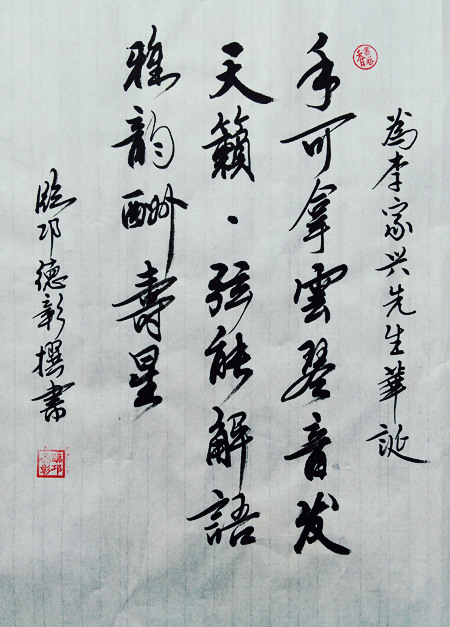 為李家兴先生華誕
手可拿雲琴音发
天籟·弦能解語
雅韵酬壽星
臨邛德彰撰書
臨邛德彰